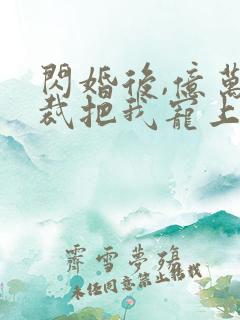 閃婚後,億萬
裁把我寵上
霽雪夢殤
未經同意禁止轉載